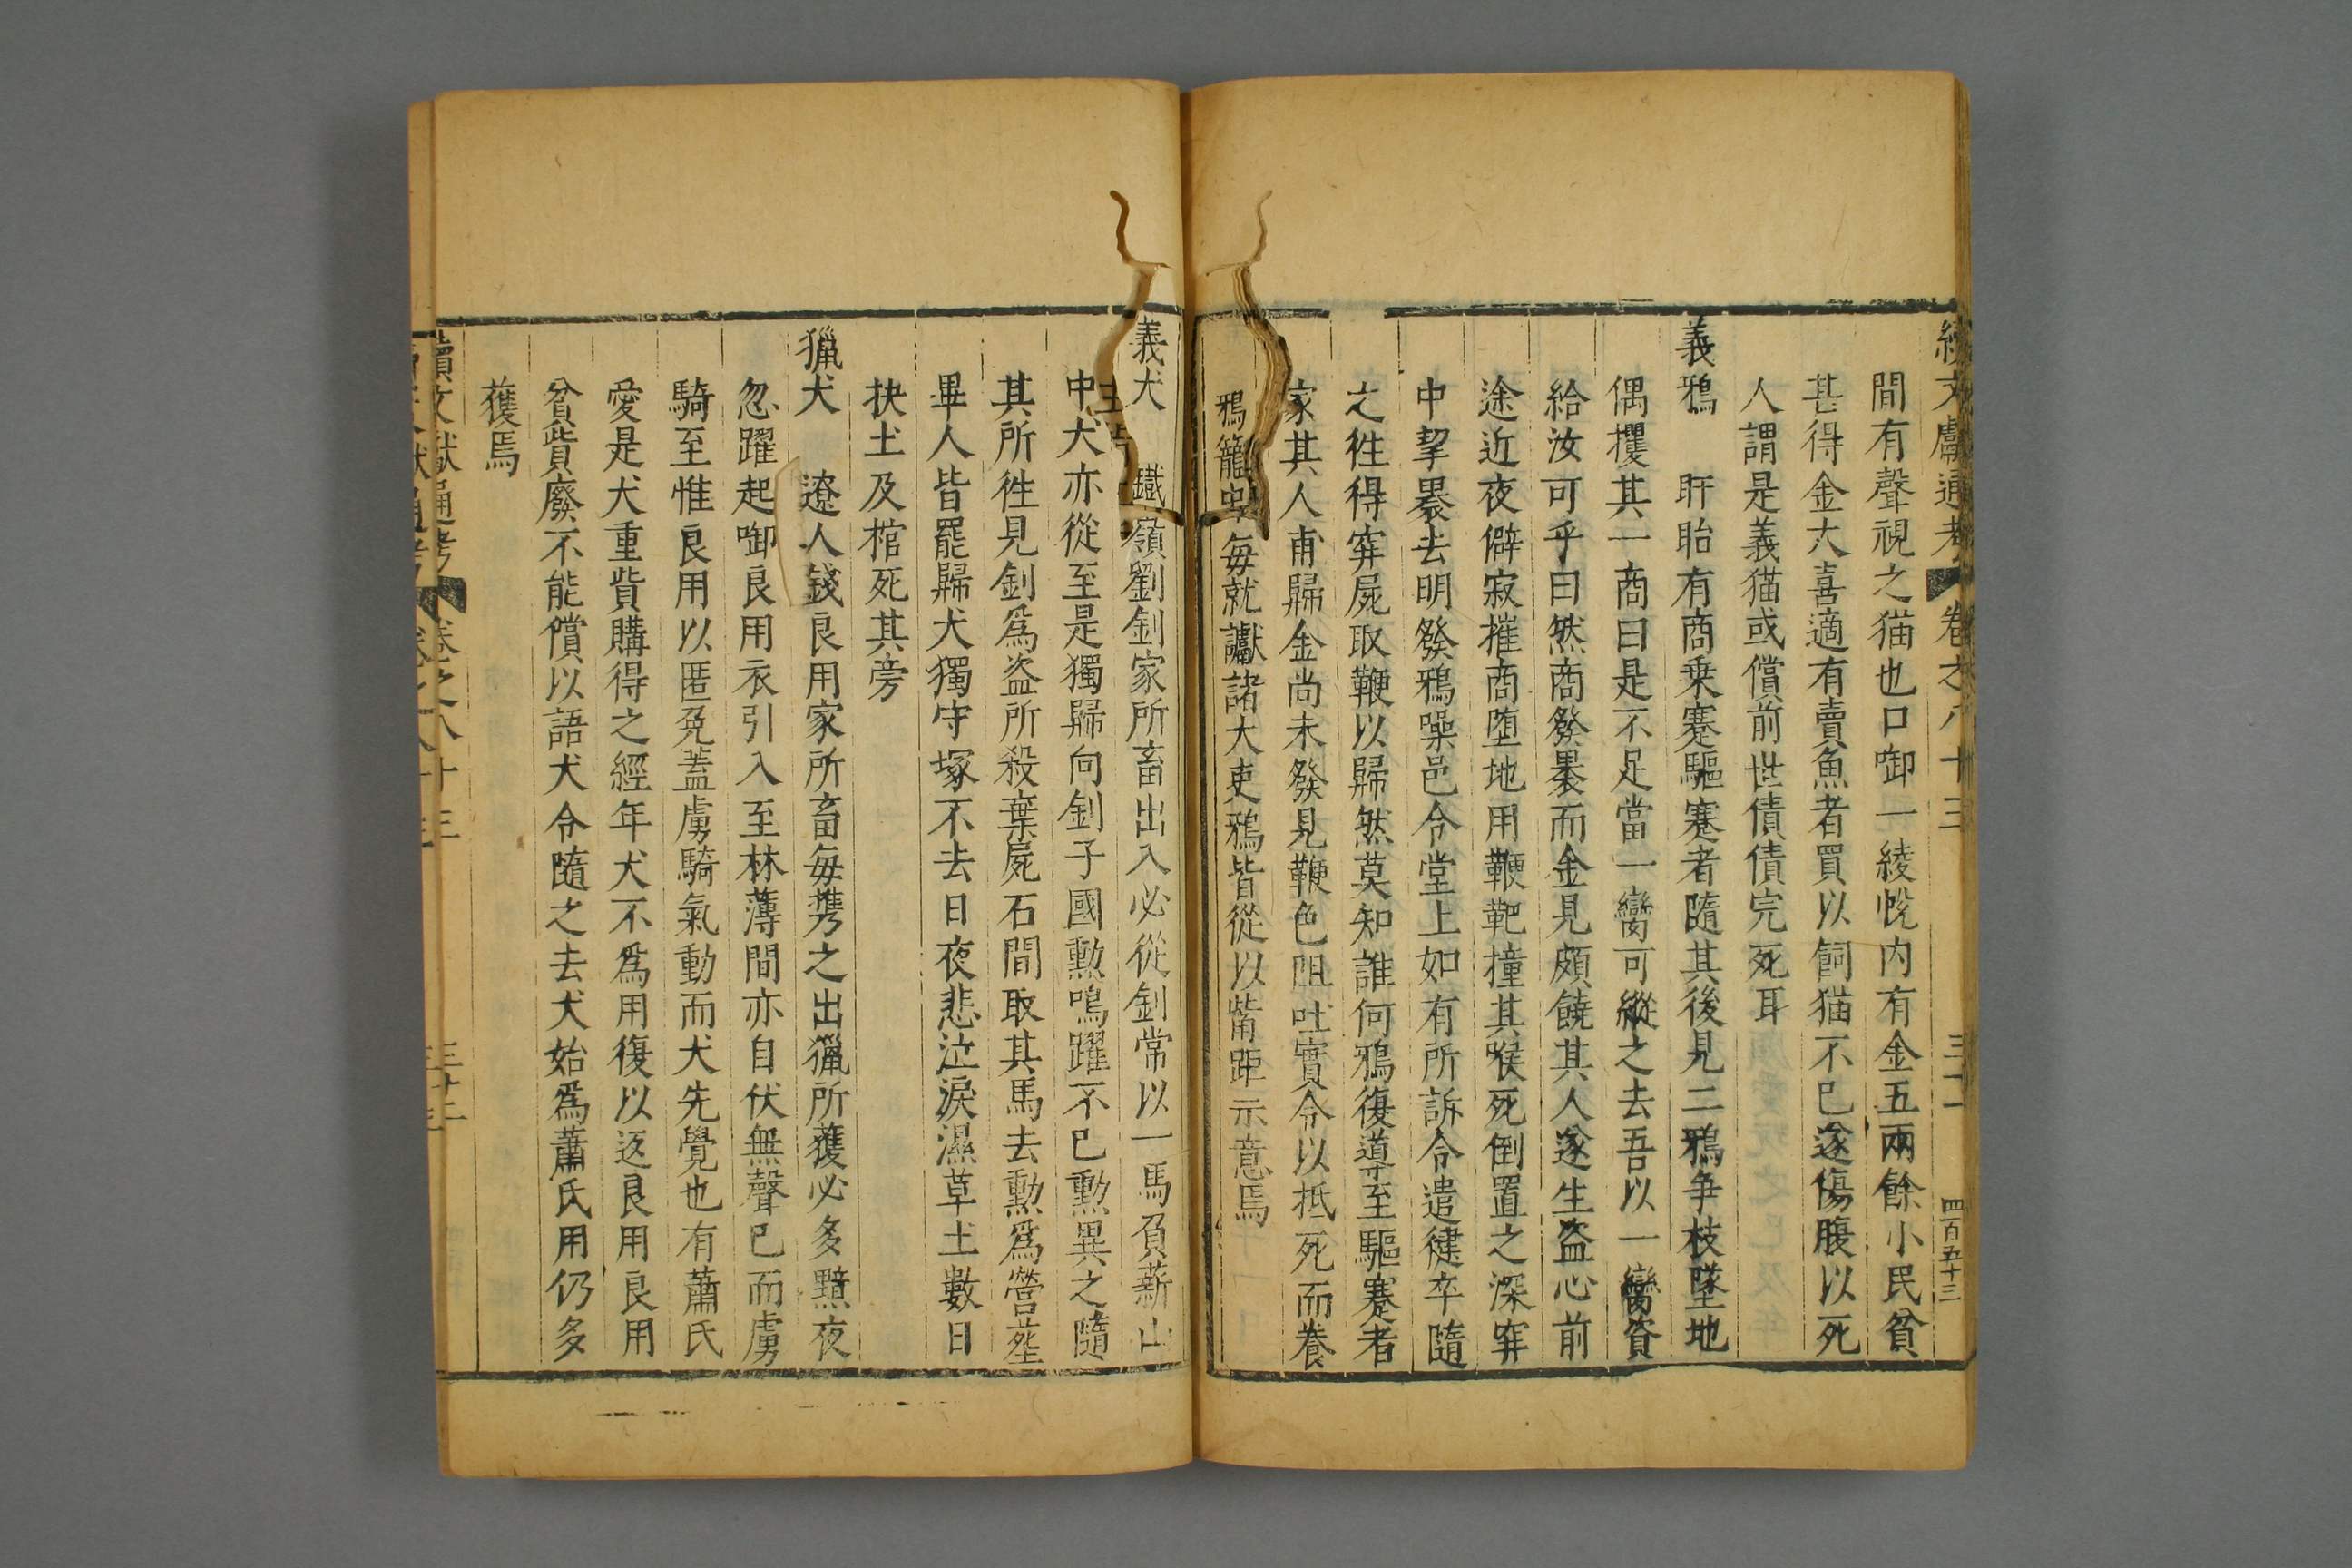 續文獻通考 卷之八十三 三十二 四百五十三
間有聲視之猫也口啣一綾帨内有金五兩餘小民貧
甚得金大喜適有賣魚者買以飼猫不已遂傷腹以死
人謂是義猫或償前世債債完死耳
義鴉 盱眙有商乗蹇驅蹇者隨其後見二鴉争枝墜地
偶攫其一商曰是不足當一臠可縱之去吾以一臠資
給汝可乎曰然商發褁而金見頗饒其人遂生盗心前
途近夜僻寂摧商堕地用鞭靶撞其喉死倒置之深穽
中挈褁去明發鴉噪邑令堂上如有所訴令遣徤卒隨
之徃得穽屍取鞭以歸然莫知誰何鴉復導至驅蹇者
家其人甫歸金尚未發見鞭色阻吐實令以抵死而養
鴉籠中每就讞諸大吏鴉皆從以觜距示意焉
義犬 鐵嶺劉釗家所畜出入必從釗常以一馬負薪山
中犬亦從至是獨歸向釗子國勲鳴躍不已勲異之隨
其所徃見釗爲盗所殺棄屍石間取其馬去勲爲營塟
畢人皆罷歸犬獨守塚不去日夜悲泣淚濕草土數日
抉土及棺死其旁
獵犬 遼人錢良用家所畜毎携之出獵所獲必多黠夜
忽躍起啣良用衣引入至林薄間亦自伏無聲已而虜
騎至惟良用以匿免蓋虜騎氣動而犬先覺也有蕭氏
愛是犬重貲購得之經年犬不爲用復以返良用良用
貧貲廢不能償以語犬令隨之去犬始爲蕭氏用仍多
獲焉
續文獻通考 卷之八十三 三十二